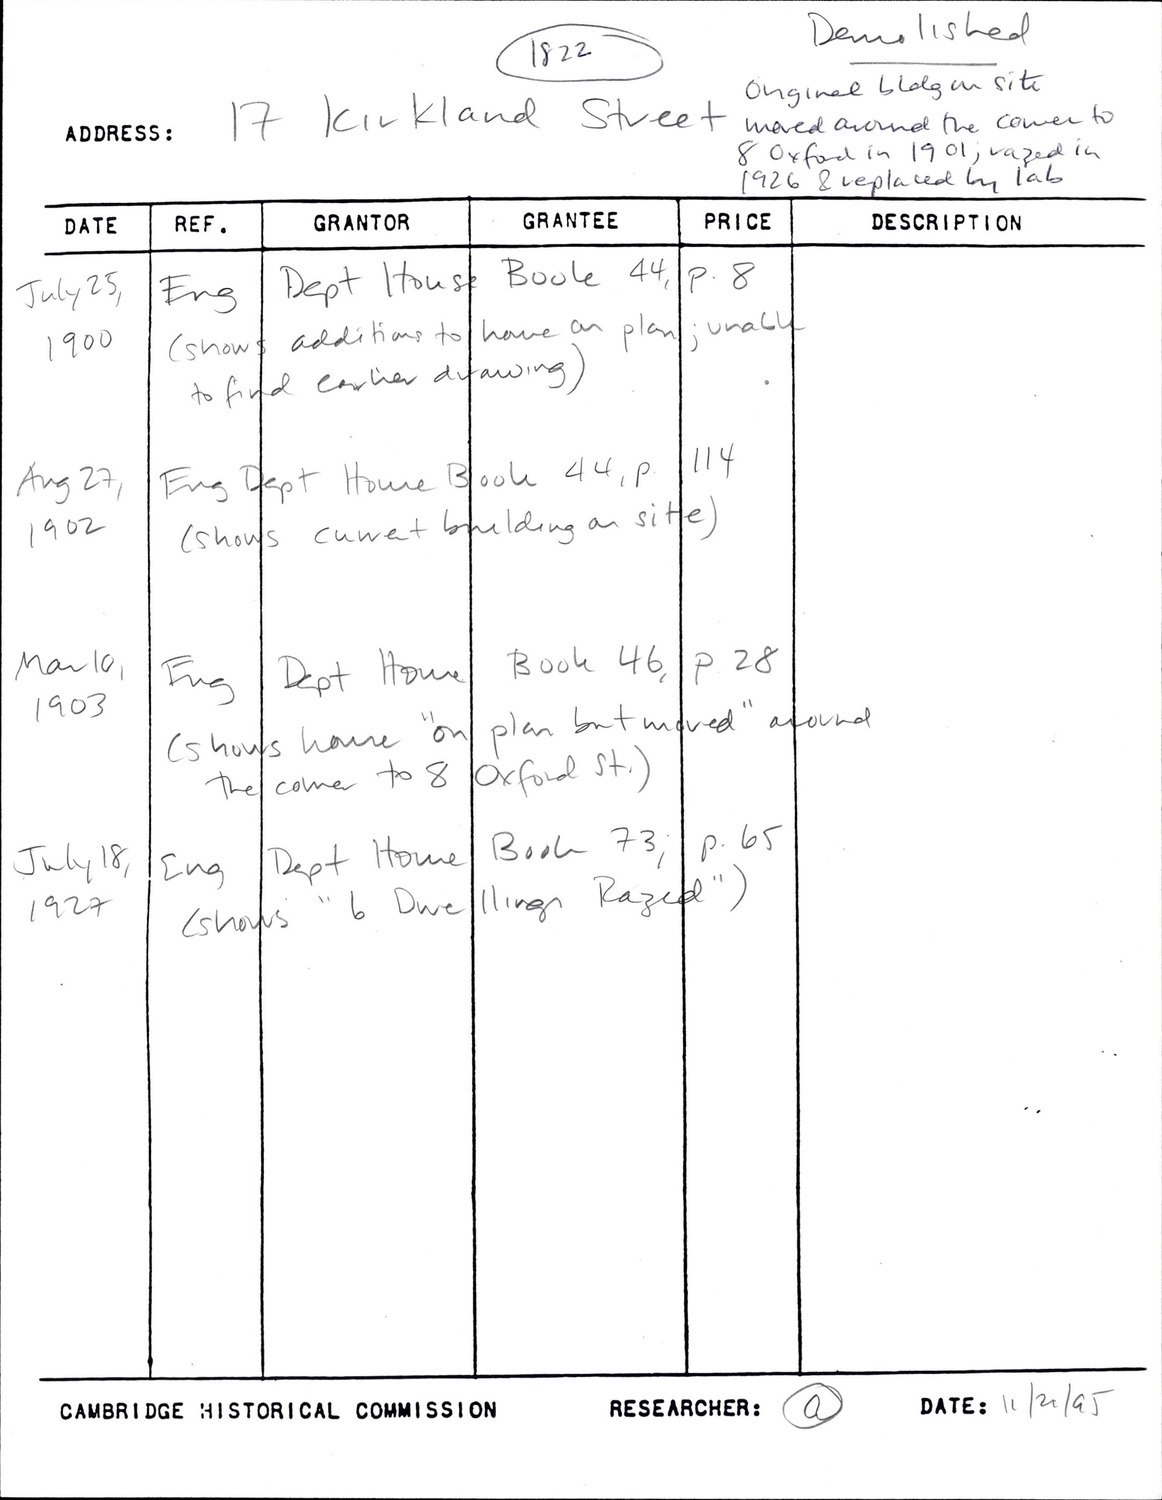 Demolished
1822
Original bldg on site
ADDRESS: 17 Kirkland Street
moved around the corner to
8 Oxford in 1901; razed in
1926 & replaced by lab
DATE REF. GRANTOR GRANTEE PRICE DESCRIPTION
July 25, Eng Dept House Book 44, p. 8
1900 (shows additions to house on plan; unable
to find earlier drawing)
Aug 27, Eng Dept House Book 44, p. 114
1902 (shows current building on site)
Mar 10, Eng Dept House Book 46, p. 28
1903 (shows house "on plan but moved" around
the corner to 8 Oxford St.)
July 18, Eng Dept House Book 73, p. 65
1927 (shows "6 Dwellings Razed")
CAMBRIDGE HISTORICAL COMMISSION RESEARCHER: a DATE: 11/21/95